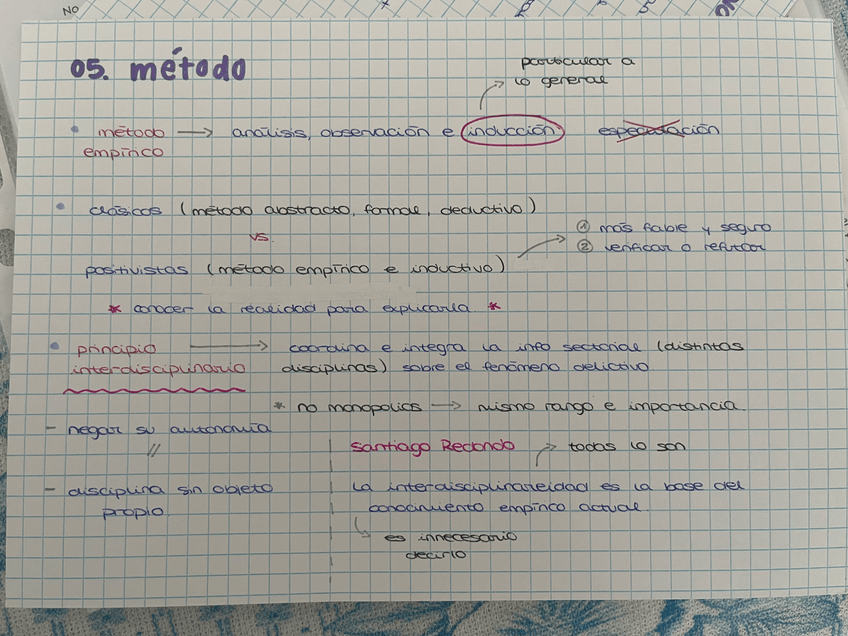 NO
05. método
particular a
lo general
• método → análisis, observación e inducción especulación
empírico
• clásicos (método abstracto, formal, deductivo)
vs.
① más fiable y seguro
② verificar o refutar
positivistas (método empírico e inductivo)
* conocer la realidad para explicarla *
• principio → coordina e integra la info sectorial (distintas
interdisciplinario disciplinas) sobre el fenómeno delictivo
* no monopolios → mismo rango e importancia.
- negar su autonomía
//
Santiago Redondo → todas lo son
- disciplina sin objeto
propio.
la interdisciplinareidad es la base del
conocimiento empírico actual.
es innecesario
decirlo